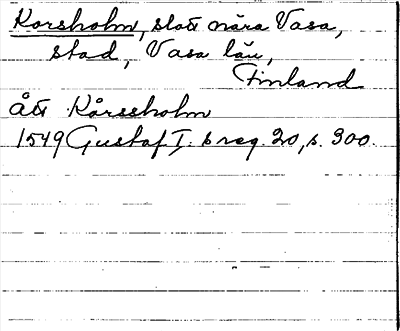 Korsholm, slott nära Vasa,
stad, Vasa län,
Finland
ått Kårssholm
1549 Gustaf I. s reg. 20, s. 300.